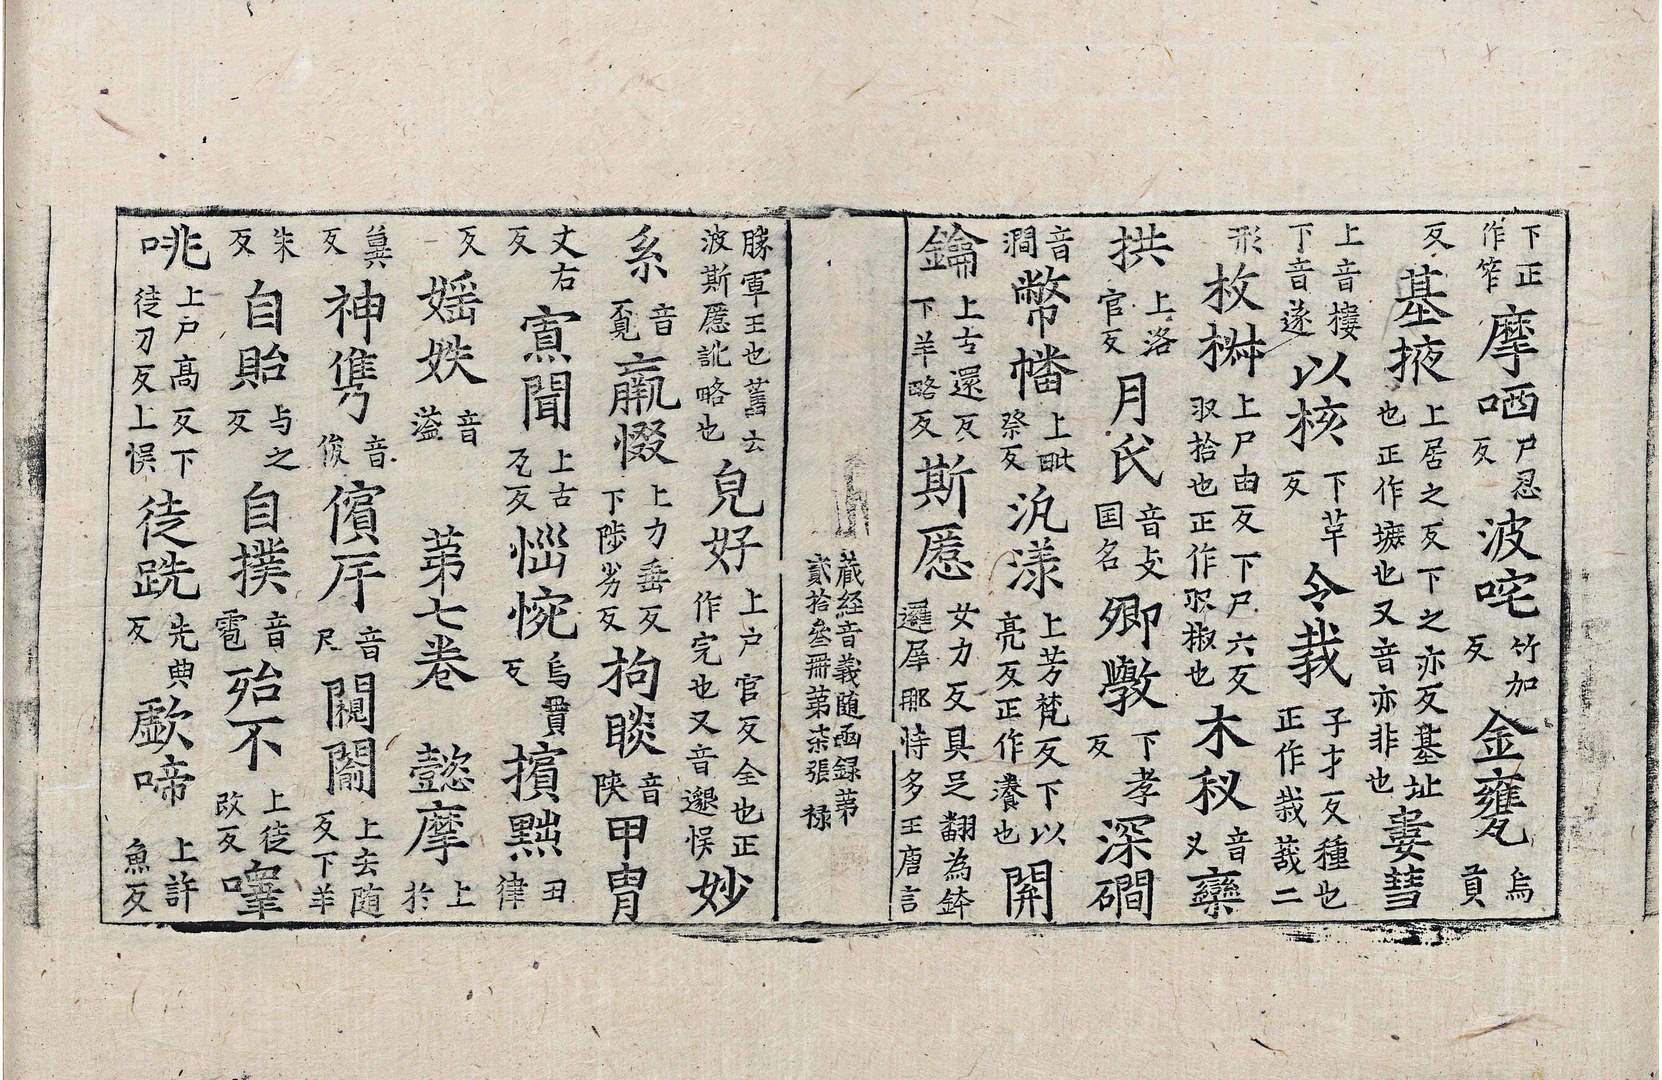 下正作笮摩哂尸忍反波咤竹加反金甕烏貢
反基掖上居之反下之亦反基址也正作墌也又音亦非也婁彗
上音摟下音遂以核下革反令栽子才反種也正作栽𦵼二
形枚椒上尸由反下尸六反収拾也正作収椒也木秘音乂欒
拱上洛官反月氏音支国名卿斆下孝反深磵
音澗幣幡上毗祭反汎漾上芳梵反下以亮反正作瀁也開
鑰上古還反下羊略反斯慝女力反具足翻為鉢邏犀那恃多王唐言
藏経音義随函録苐貳拾叄冊苐柒張 禄
勝軍王也舊云波斯慝訛略也皃好上户官反全也正作完也又音邈悮妙
糸音覔羸惙上力垂反下陟劣反拘睒音陝甲胄
丈右反𡩋聞上古瓦反惱惋烏貫反擯黜丑律
反婬妷音溢苐七巻懿摩上於
兾反神儁音俊儐庌音尺闚闟上去随反下羊
朱反自貽与之反自撲音雹殆不上徒改反嚾
咷上户高反下徒刀反上悮徒跣先典反歔啼上許魚反